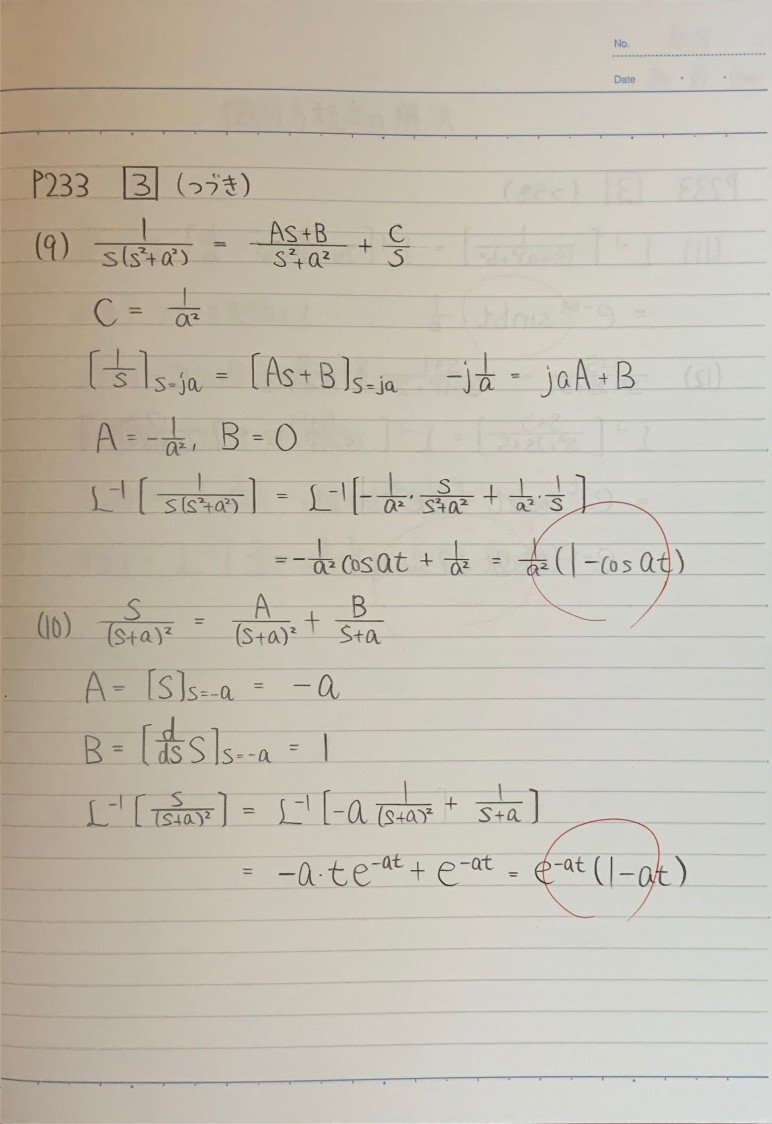 No.
Date
P233 3 (つづき)
(9) 1/(s(s²+a²)) = (As+B)/(s²+a²) + C/s
C = 1/a²
[1/s]s=ja = [As+B]s=ja -j1/a = jaA+B
A = -1/a², B = 0
L⁻¹[1/(s(s²+a²))] = L⁻¹[-1/a²・s/(s²+a²) + 1/a²・1/s]
= -1/a² cos at + 1/a² = 1/a² (1-cos at)
(10) s/(s+a)² = A/(s+a)² + B/(s+a)
A = [s]s=-a = -a
B = [d/ds s]s=-a = 1
L⁻¹[s/(s+a)²] = L⁻¹[-a 1/(s+a)² + 1/(s+a)]
= -a・te^(-at) + e^(-at) = e^(-at) (1-at)